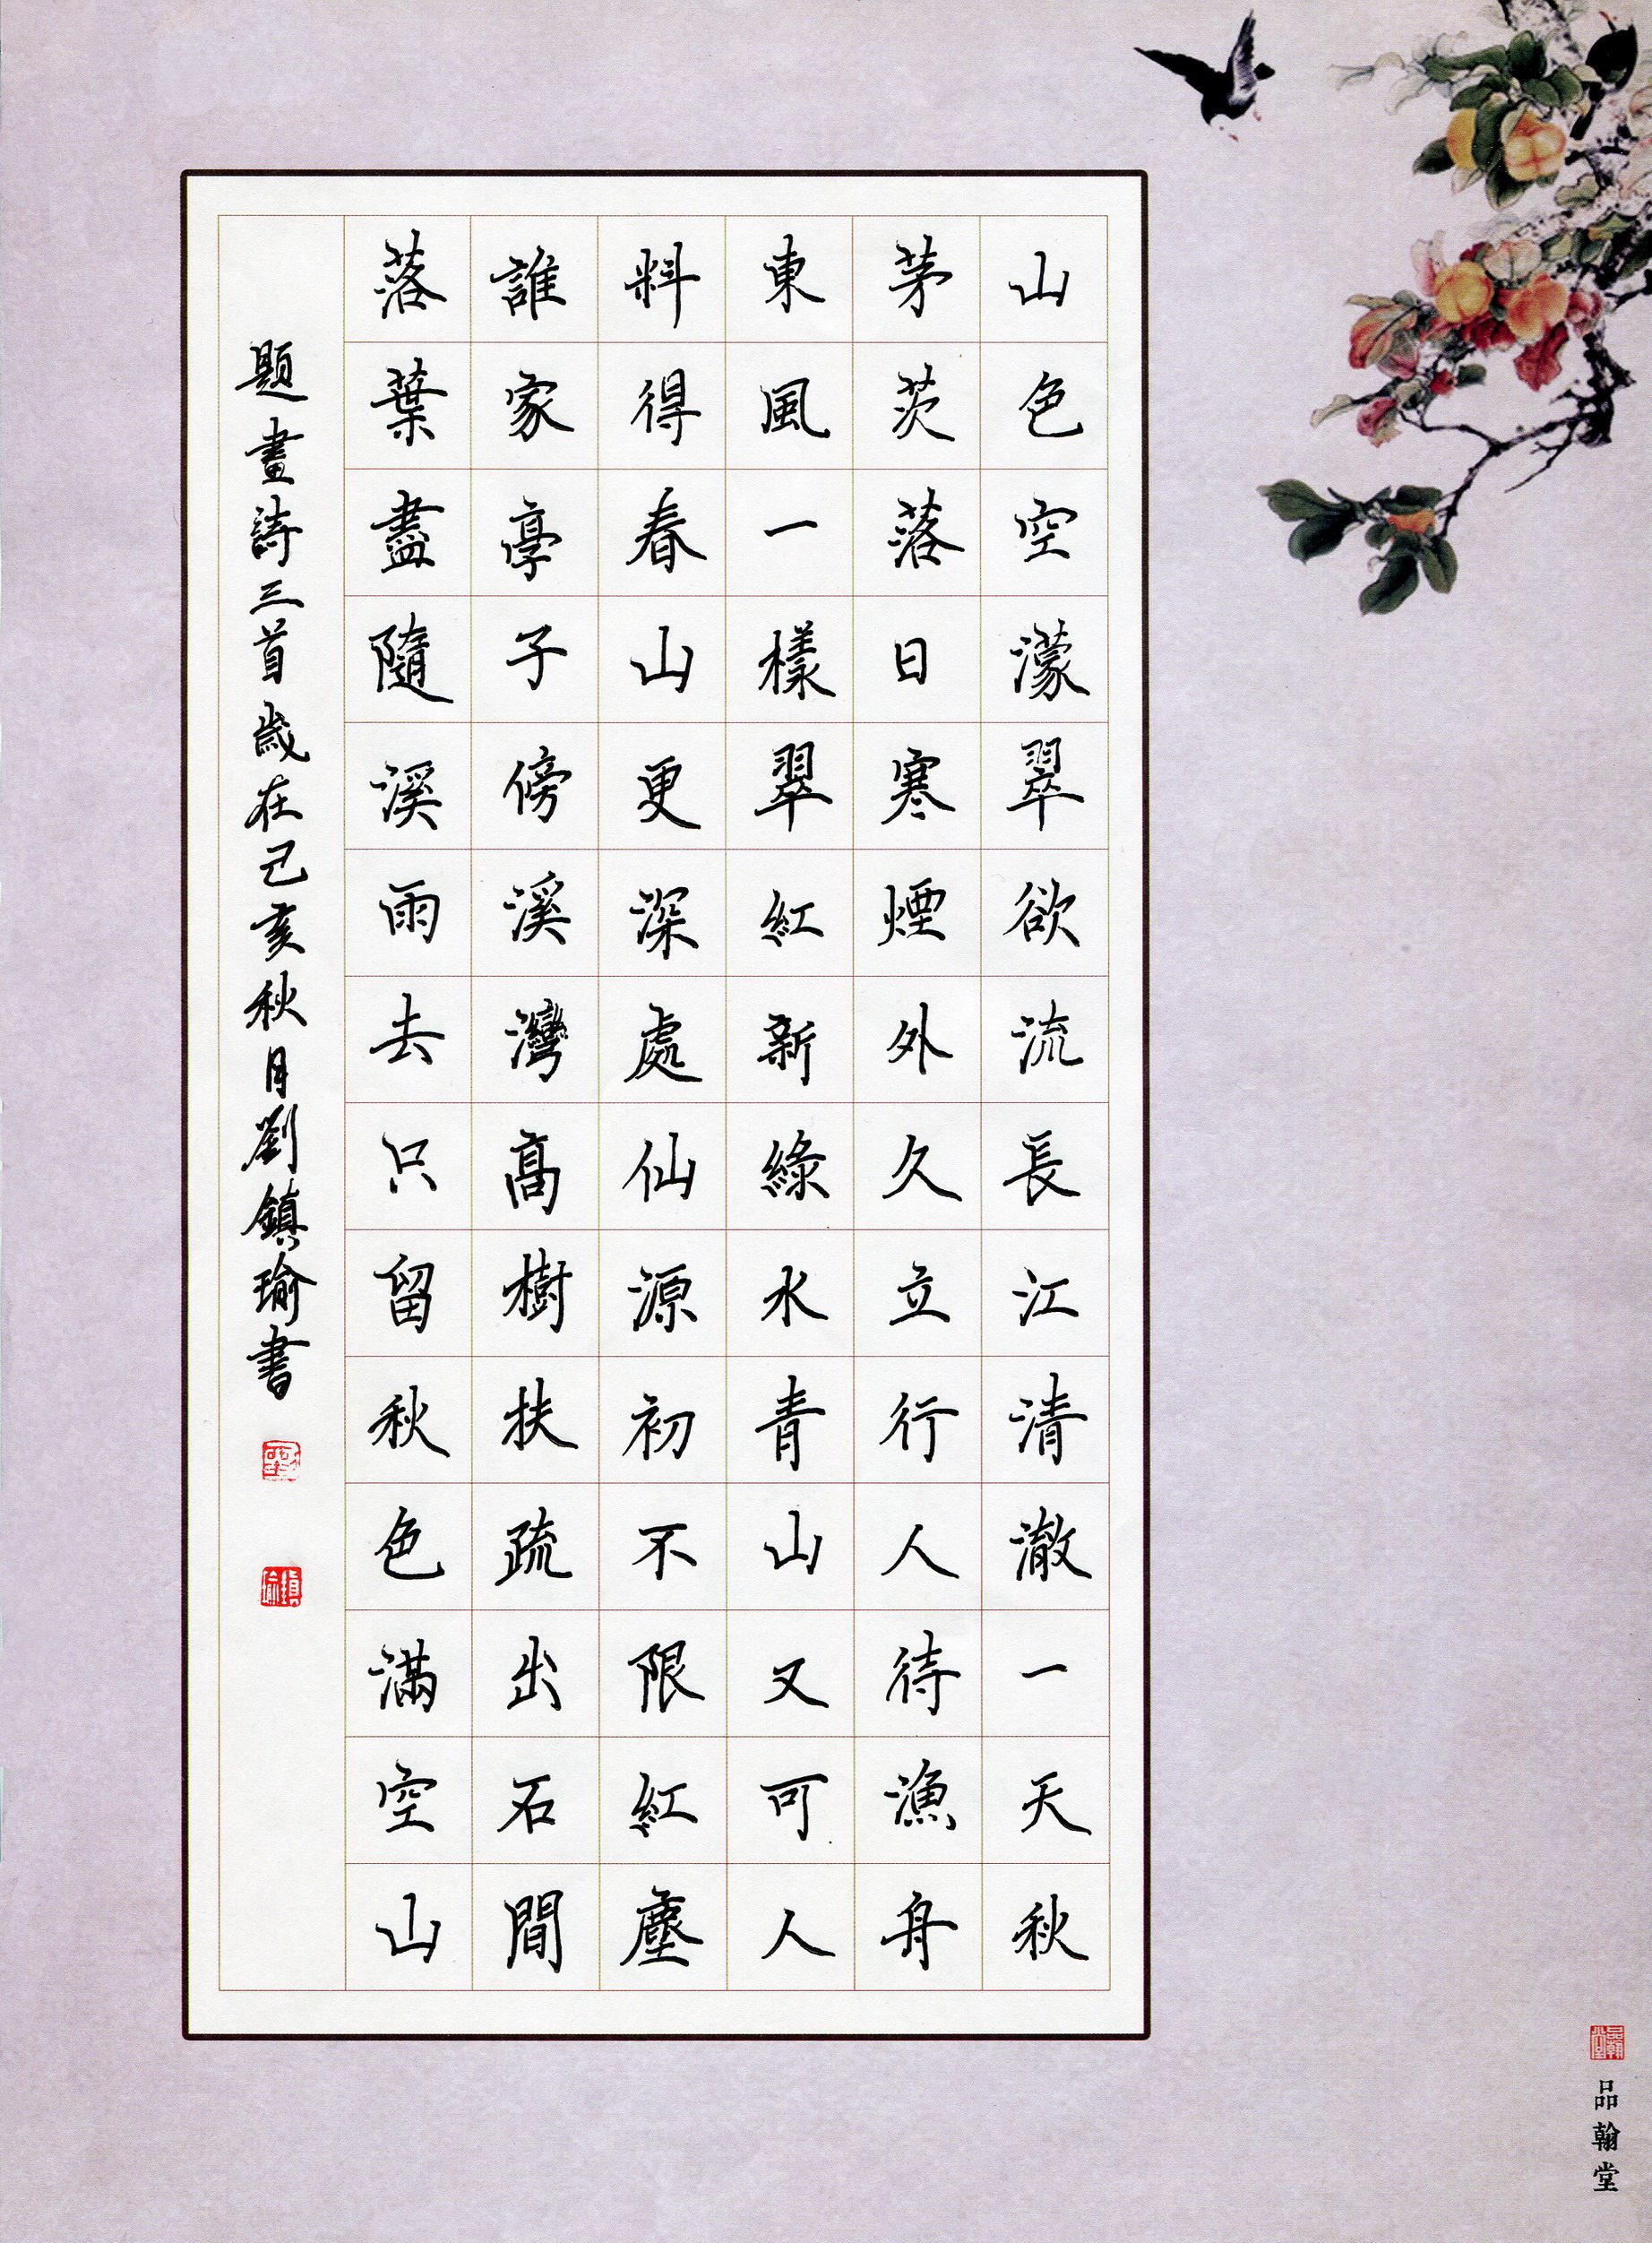 山色空濛翠欲流長江清澈一天秋
茅茨落日寒煙外久立行人待漁舟
東風一樣翠紅新綠水青山又可人
料得春山更深處仙源初不限紅塵
誰家亭子傍溪灣高樹扶疏出石間
落葉盡隨溪雨去只留秋色滿空山
題畫詩三首歲在己亥秋月劉鎮瑜書
鎮瑜
品翰堂
品翰堂